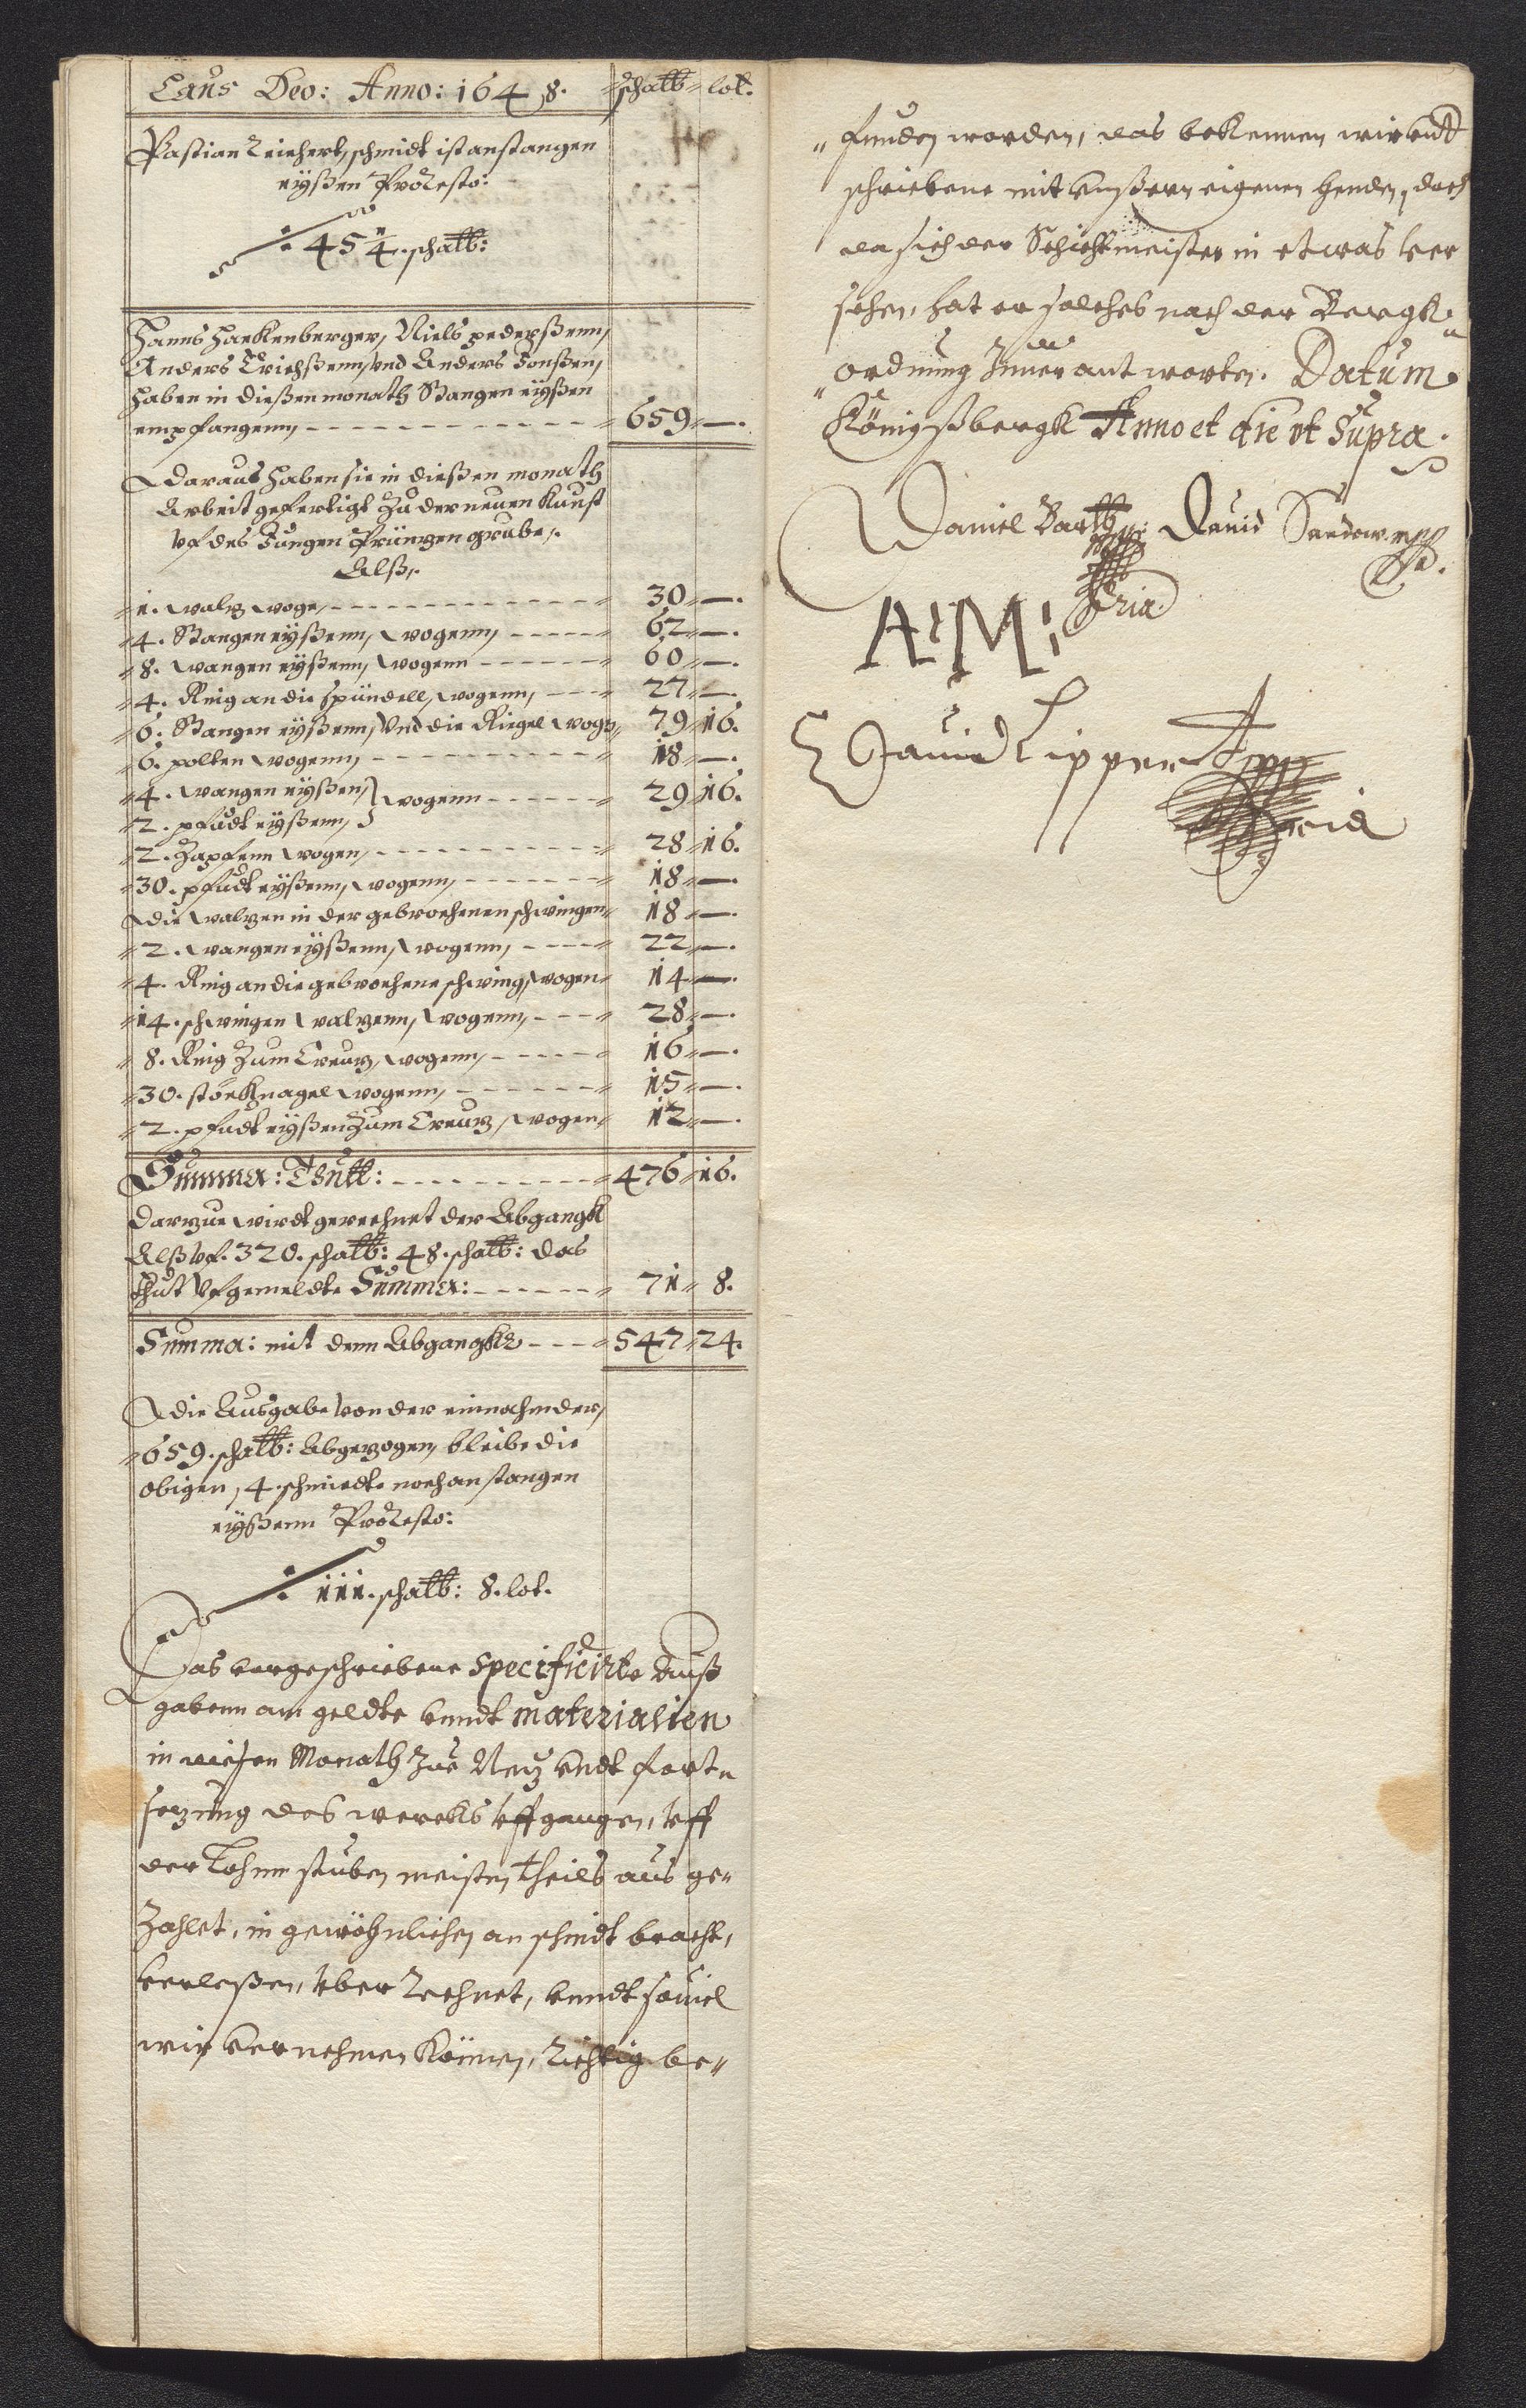 Laus Deo: Anno: 1648. schalb lot.
Pastian Reichert, schmidt ist an stangen
eyßen Pro Resto:
45 1/4. schalb:
Hanns Hackenberger, Niels pederßenn,
Anders Erichßenn, Vnd Anders Jonßen,
haben in dießen monath Stangen eyßen
empfangenn, 659 —.
Daraus haben sie in dießen monath
Arbeit gefertigt Zu der neuen Kunst
Vf des Jungen Printzen grube,.
Alß,.
1. walz woge, 30 —.
4. Stangen eyßenn, wogenn, 62 —.
8. wangen eyßenn, wogenn 60 —.
4. Ring an die spündell, wogenn, 27 —.
6. Stangen eyßenn, Vnd die Riegel wogn 79 16.
6. polten wogenn, 18 —.
4. wangen eyßen, } wogenn 29 16.
2. pfadt eyßenn, }
2. Zapfenn wogen, 28 16.
30. pfadt eyßenn, wogenn, 18 —.
die walzen in der gebrochenen schwingen 18 —.
2. wangen eyßenn, wogenn, 22 —.
4. Ring an die gebrochene schwing, wogen 14 —.
14. schwingen walzenn, wogenn, 28 —.
8. Ring Zum Creutz, wogenn, 16 —.
30. störcknagel wogenn, 15 —.
2. pfadt eyßen Zum Creutz, wogen 12 —.
Summa: Thutt: 476 16.
Darzue wirdt gerechnet der Abgangk
Alß vf. 320. schalb: 48. schalb: das
thut Vf gemeldte Summa: 71 8.
Summa: mit dem Abgangke 547 24.
die Ausgabe von der einnahm der,
659. schalb: Abgezogen, bleibe die
obigen, 4. schmiedte noch an stangen
eyßenn Pro Resto:
111. schalb: 8. lot.
Das vorgeschriebene specificirte Auß
gabenn am geldte vnndt materialien
in diesen Monath Zue Nutz vndt fort-
sezung des wercks vffgangen, vff
der Lohnn stuben meisten theils aus ge-
Zahlet, in gewöhnlichen an schnidt bracht,
verleßen, vber Rechnet, vnndt souiel
wir vernehmen Können, Richtig be-
funden worden, das bekennen wir vnd
schriebene mit vnßern eigenen henden, doch
da sich der Schichtmeister in etwas ver
sehen, hat er solches nach der Bergk-
ordnung Zuuer antworten. Datum
Königßbergk Anno et die vt Supra.
Daniel Barth mp: Dauid Sandow. mpp
A: M:
Dauid Lippert mpp